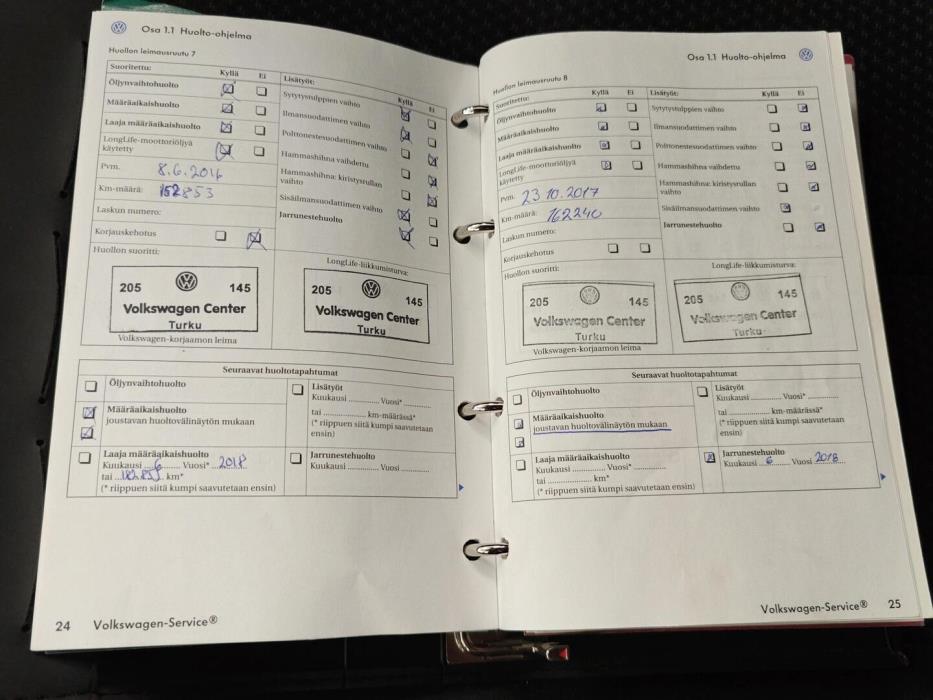 Osa 1.1 Huolto-ohjelma
Huollon leimausruutu 7
Suoritettu: Kyllä Ei
Öljynvaihtohuolto
Määräaikaishuolto
Laaja määräaikaishuolto
LongLife-moottoriöljyä
käytetty
Pvm. 8.6.2016
Km-määrä: 152853
Laskun numero:
Korjauskehotus
Huollon suoritti:
Lisätyöt: Kyllä Ei
Sytytystulppien vaihto
Ilmansuodattimen vaihto
Polttonestesuodattimen vaihto
Hammashihna vaihdettu
Hammashihna: kiristysrullan
vaihto
Sisäilmansuodattimen vaihto
Jarrunestehuolto
LongLife-liikkumisturva:
205 145
Volkswagen Center
Turku
205 145
Volkswagen Center
Turku
Volkswagen-korjaamon leima
Seuraavat huoltotapahtumat
Öljynvaihtohuolto
Määräaikaishuolto
joustavan huoltovälinäytön mukaan
Laaja määräaikaishuolto
Kuukausi 6 Vuosi* 2018
tai 182.853 km*
(* riippuen siitä kumpi saavutetaan ensin)
Lisätyöt
Kuukausi .............. Vuosi* ..............
tai .................... km-määrässä*
(* riippuen siitä kumpi saavutetaan
ensin)
Jarrunestehuolto
Kuukausi .............. Vuosi ..............
24 Volkswagen-Service®
Osa 1.1 Huolto-ohjelma
Huollon leimausruutu 8
Suoritettu: Kyllä Ei
Öljynvaihtohuolto
Määräaikaishuolto
Laaja määräaikaishuolto
LongLife-moottoriöljyä
käytetty
Pvm. 23.10.2017
Km-määrä: 162240
Laskun numero:
Korjauskehotus
Huollon suoritti:
Lisätyöt: Kyllä Ei
Sytytystulppien vaihto
Ilmansuodattimen vaihto
Polttonestesuodattimen vaihto
Hammashihna vaihdettu
Hammashihna: kiristysrullan
vaihto
Sisäilmansuodattimen vaihto
Jarrunestehuolto
LongLife-liikkumisturva:
205 145
Volkswagen Center
Turku
205 145
Volkswagen Center
Turku
Volkswagen-korjaamon leima
Seuraavat huoltotapahtumat
Öljynvaihtohuolto
Määräaikaishuolto
joustavan huoltovälinäytön mukaan
Laaja määräaikaishuolto
Kuukausi .............. Vuosi* ..............
tai .................... km*
(* riippuen siitä kumpi saavutetaan ensin)
Lisätyöt
Kuukausi .............. Vuosi* ..............
tai .................... km-määrässä*
(* riippuen siitä kumpi saavutetaan
ensin)
Jarrunestehuolto
Kuukausi 6 Vuosi 2018
Volkswagen-Service® 25